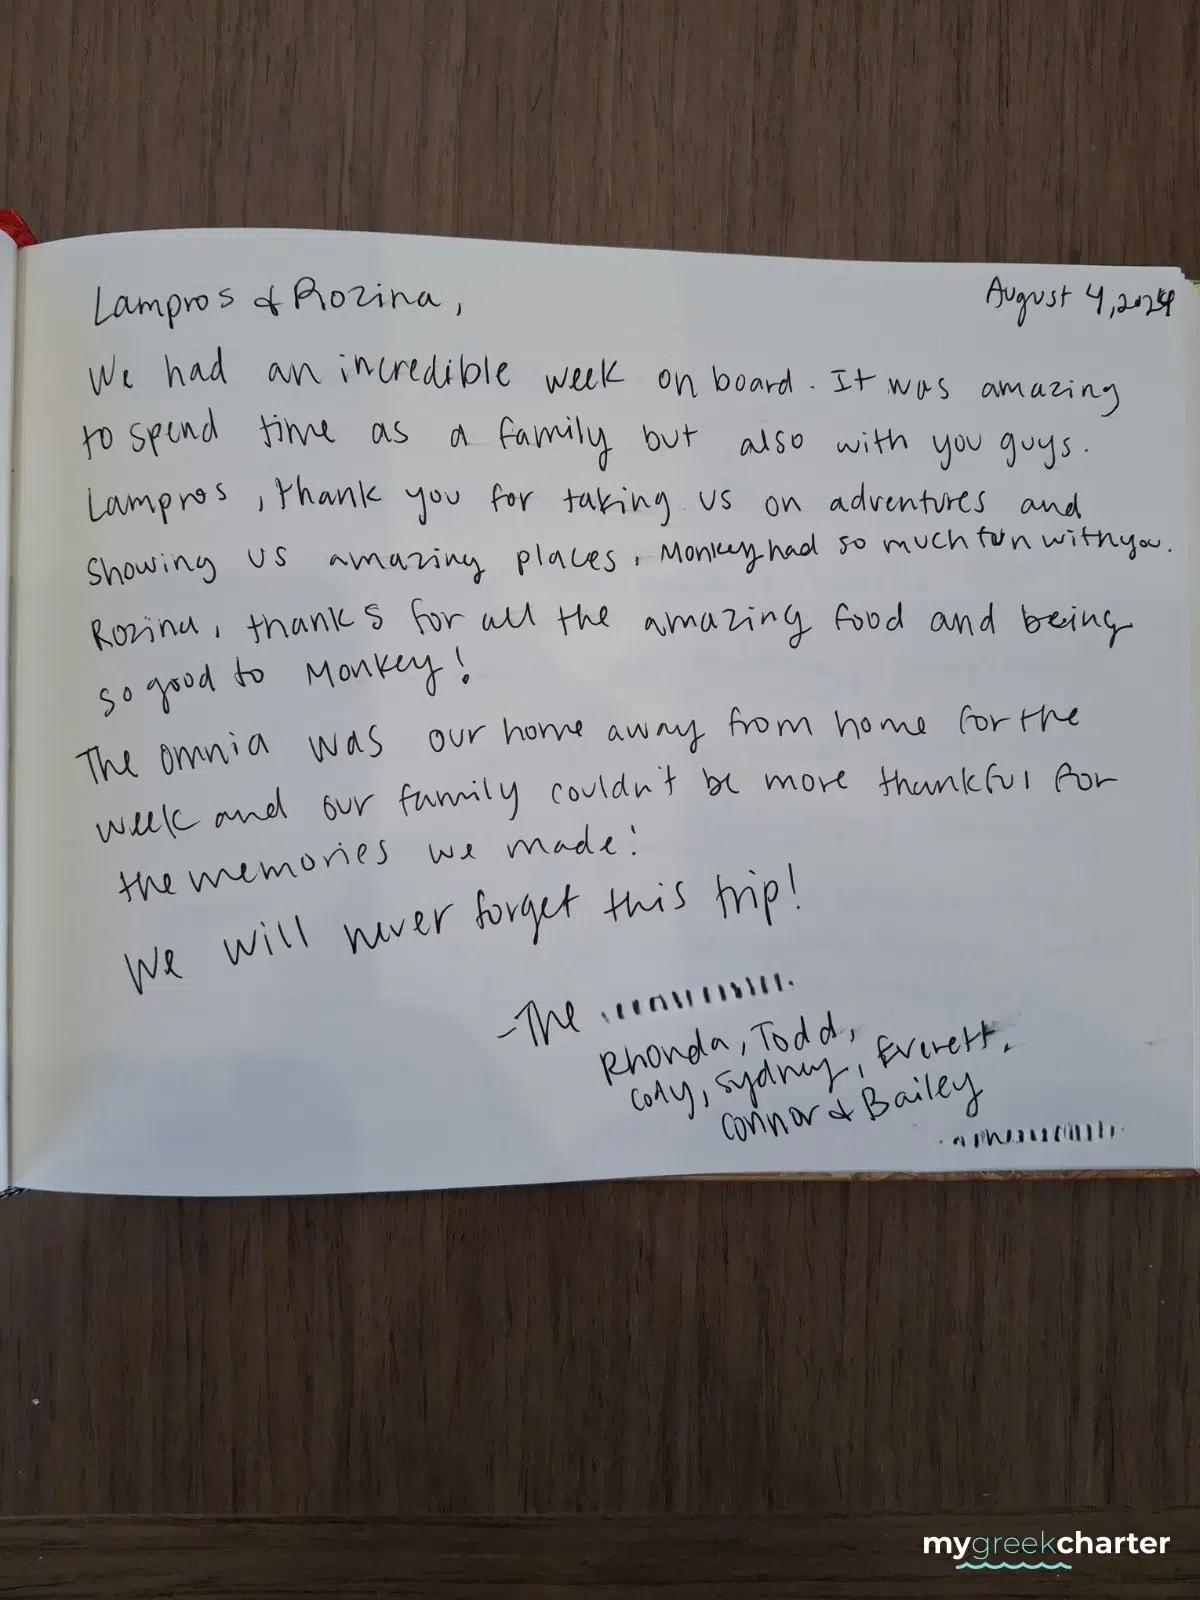 August 4, 2024
Lampros & Rozina,
We had an incredible week on board. It was amazing
to spend time as a family but also with you guys.
Lampros, thank you for taking us on adventures and
showing us amazing places. Monkey had so much fun with you.
Rozina, thanks for all the amazing food and being
so good to Monkey!
The omnia was our home away from home for the
week and our family couldn't be more thankful for
the memories we made!
We will never forget this trip!
-The
Rhonda, Todd,
Cody, Sydney, Everett,
Connor & Bailey
mygreekcharter